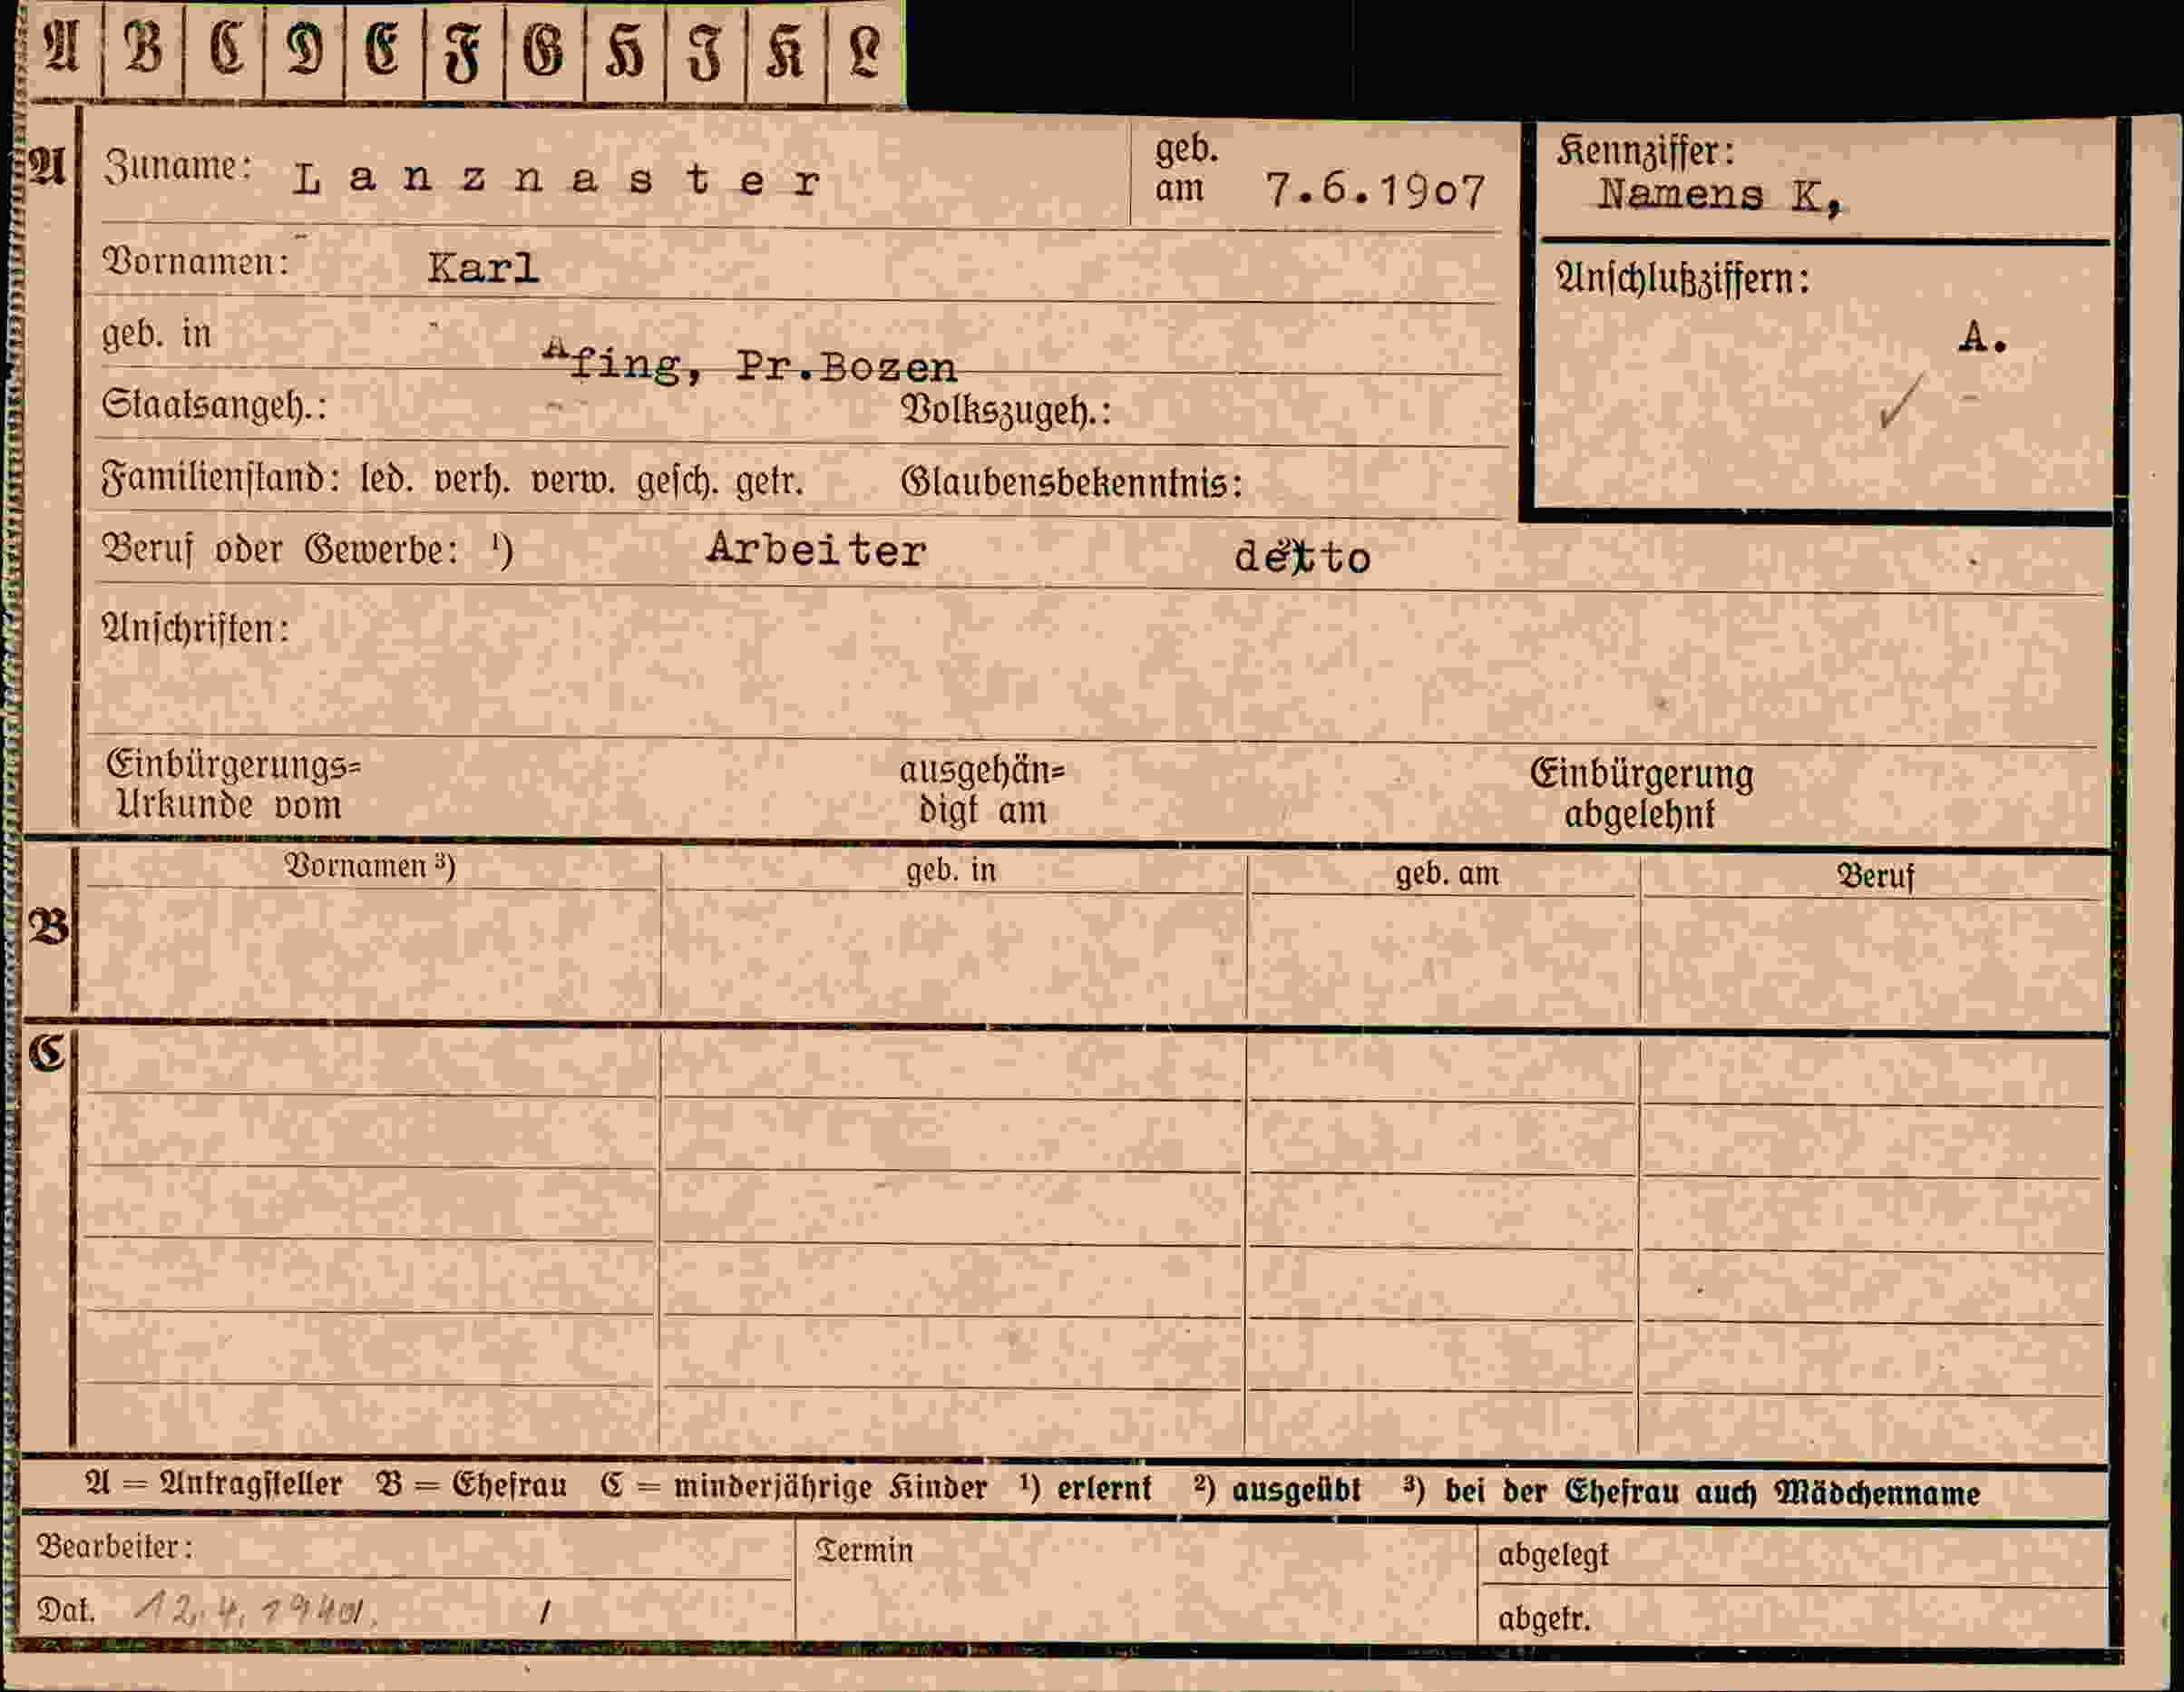 A B C D E F G H I K L
A Zuname: Lanznaster geb. am 7.6.1907 Kennziffer: Namens K,
Vornamen: Karl
Anschlußziffern:
geb. in Afing, Pr.Bozen
A.
Staatsangeh.: Volkszugeh.:
Familienstand: led. verh. verw. gesch. getr. Glaubensbekenntnis:
Beruf oder Gewerbe: ¹) Arbeiter detto
Anschriften:
Einbürgerungs= ausgehän= Einbürgerung
Urkunde vom digt am abgelehnt
Vornamen ³) geb. in geb. am Beruf
B
C
A = Antragsteller B = Ehefrau C = minderjährige Kinder ¹) erlernt ²) ausgeübt ³) bei der Ehefrau auch Mädchenname
Bearbeiter: Termin abgelegt
Dat. 12.4.1940. / abgetr.